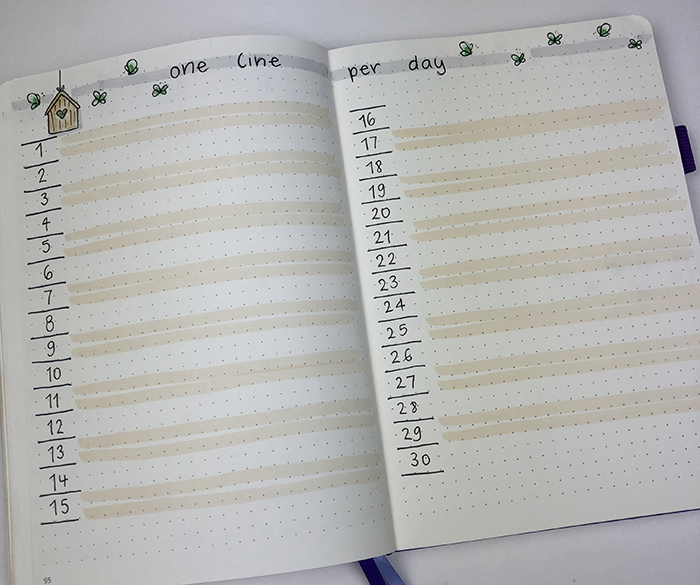 one line per day
1
2
3
4
5
6
7
8
9
10
11
12
13
14
15
95
16
17
18
19
20
21
22
23
24
25
26
27
28
29
30